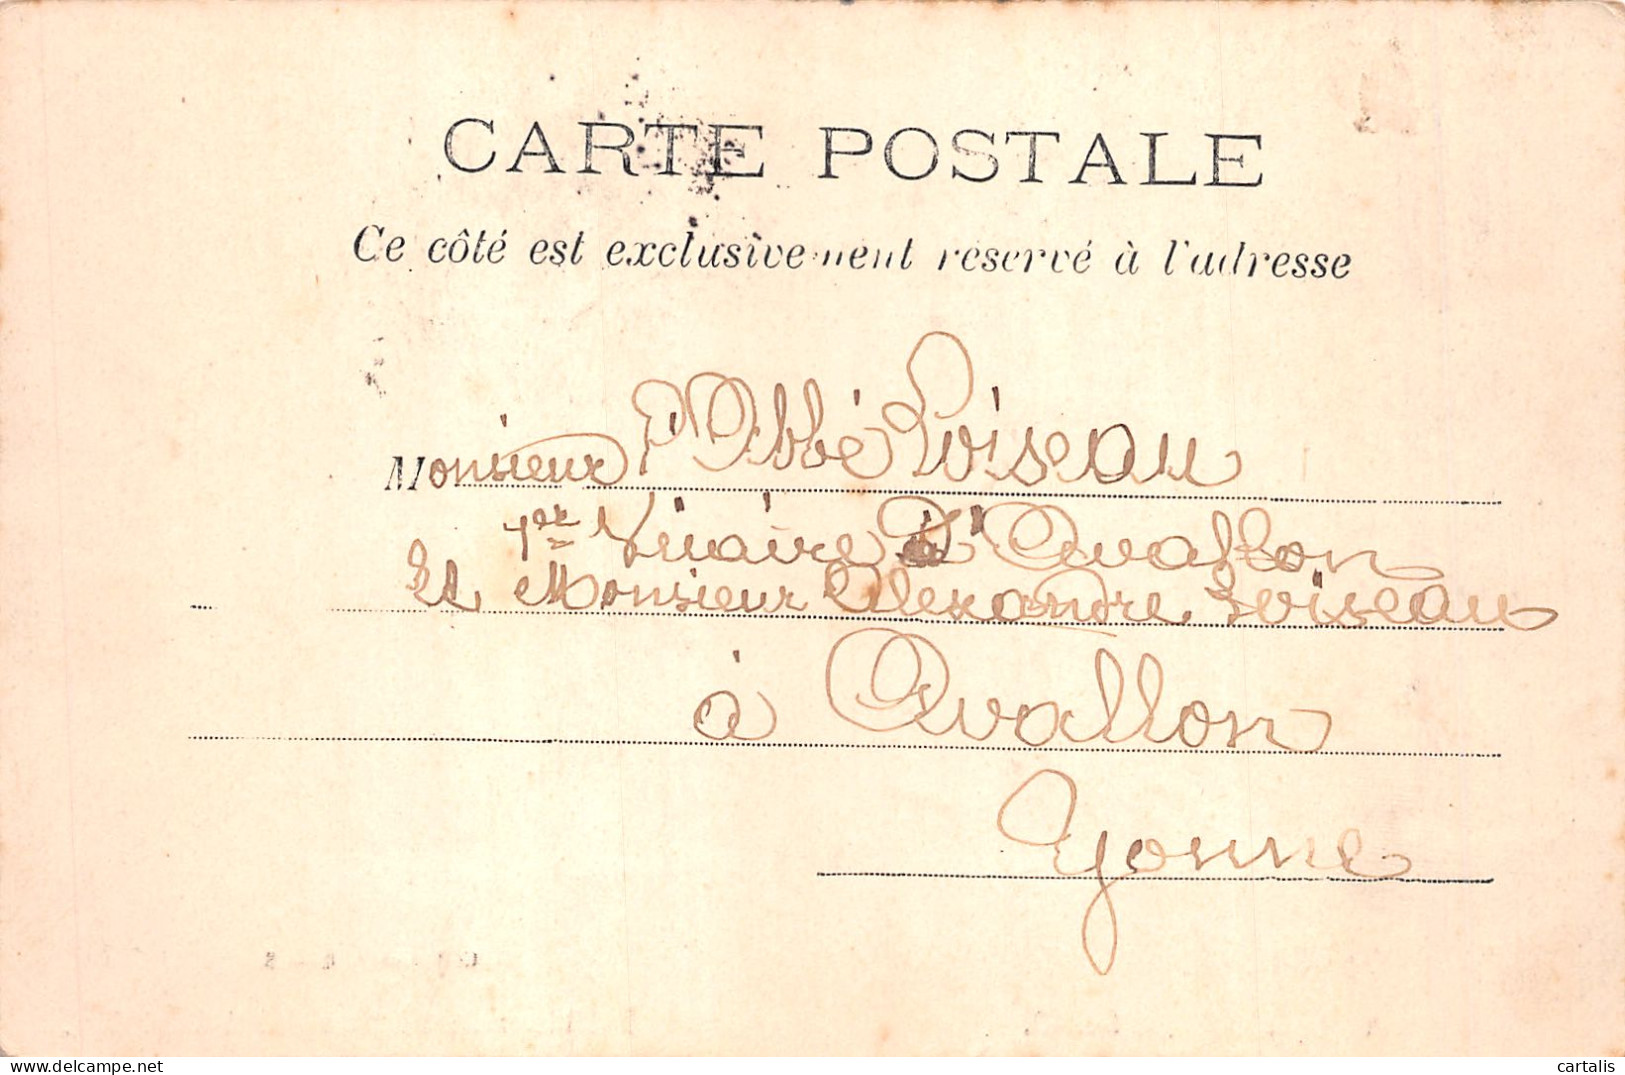 CARTE POSTALE
Ce côté est exclusivement réservé à l'adresse
Monsieur l'Abbé Loiseau
1er Vicaire d'Avallon
Et Monsieur Alexandre Loiseau
à Avallon
Yonne
cartalis